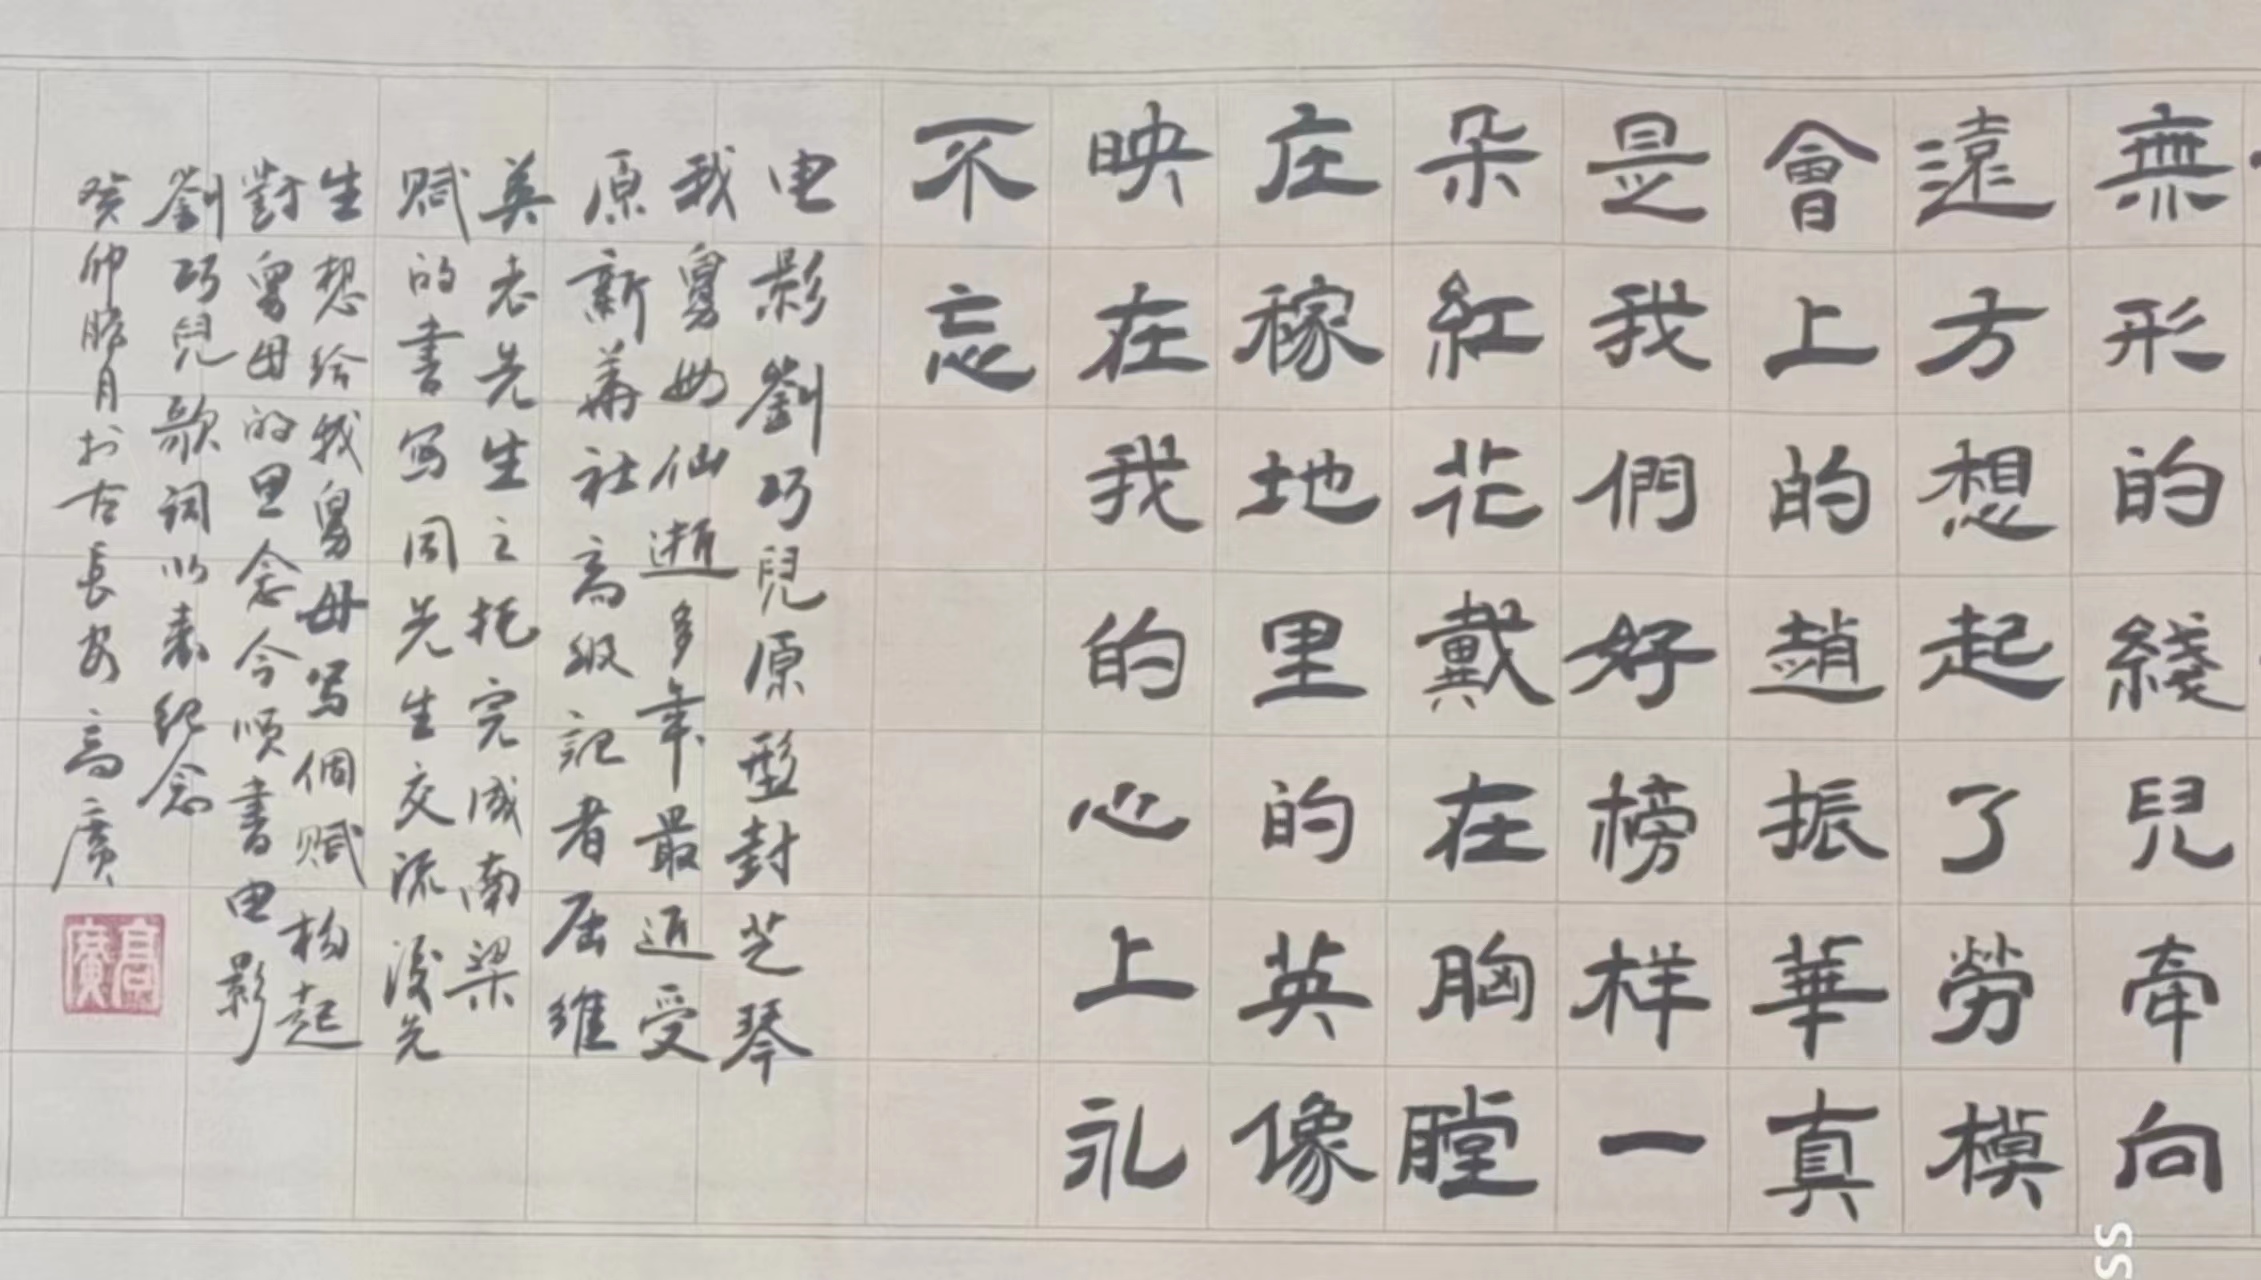 無形的綫兒牽向
遠方想起了勞模
會上的趙振華真
是我們好榜样一
朵紅花戴在胸膛
庄稼地里的英像
映在我的心上永
不忘
电影劉巧兒原型封芝琴
我舅母仙逝多年最近受
原新華社高级記者屈維
英老先生之托完成南梁
赋的書写同先生交流后先
生想给我舅母写個赋 勾起
對舅母的思念今順書电影
劉巧兒歌詞以表纪念
癸卯腊月于古長安高廣
高廣
SS